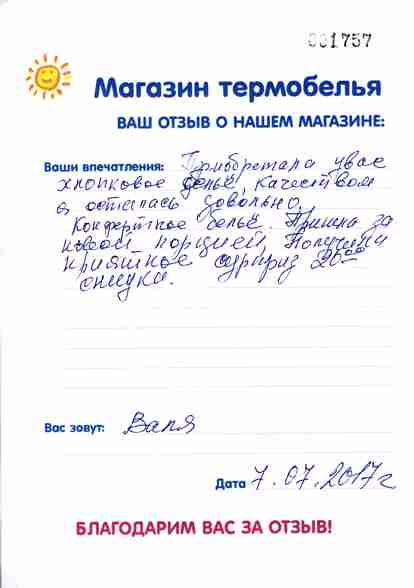 001757
Магазин термобелья
ВАШ ОТЗЫВ О НАШЕМ МАГАЗИНЕ:
Ваши впечатления: Приобретала у вас
хлопковое бельё, качеством
я осталась довольно,
Комфортное бельё. Пришла за
новой порцией, Получили
приятное сюрприз 20%
скидки.
Вас зовут: Валя
Дата 7.07.2017г
БЛАГОДАРИМ ВАС ЗА ОТЗЫВ!